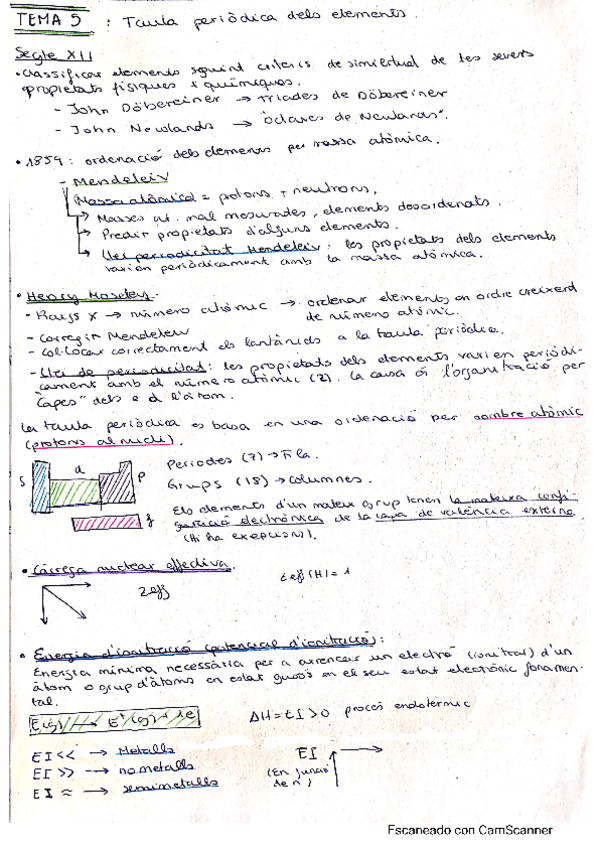 TEMA 5 : Taula periòdica dels elements.
Segle XIX
• Classificar elements seguint criteris de similitud de les seves
propietats físiques i químiques.
- John Döbereiner → Triades de Döbereiner
- John Newlands → "Octaves de Newlands".
• 1859: ordenació dels elements per massa atòmica.
- Mendeleiv
Massa atòmica = protons + neutrons.
→ Masses at. mal mesurades, elements desordenats.
→ Predir propietats d'alguns elements.
→ Llei periodicitat Mendeleiv: les propietats dels elements
varien periòdicament amb la massa atòmica.
• Henry Moseley.
- Raigs X → número atòmic → ordenar elements en ordre creixent
de número atòmic.
- Corregir Mendeleiv
- Col·locar correctament els lantànids a la taula periòdica.
- Llei de periodicitat: les propietats dels elements varien periòdi-
cament amb el número atòmic (Z). La causa és l'organització per
"capes" dels e d l'àtom.
La taula periòdica es basa en una ordenació per nombre atòmic
(protons al nucli).
S d p f
Períodes (7) → Fila.
Grups (18) → columnes.
Els elements d'un mateix grup tenen la mateixa confi-
guració electrònica de la capa de valència externa
(Hi ha excepcions).
• Càrrega nuclear effectiva.
Zeff
Zeff (H) = 1
• Energia d'ionització (potencial d'ionització):
Energia mínima necessària per a arrencar un electró (ionitzar) d'un
àtom o grup d'àtoms en estat gasós en el seu estat electrònic fonamen-
tal.
E(g) → E⁺(g) + 1e
ΔH = EI > 0 procés endotèrmic
EI << → Metalls
EI >> → no metalls
EI ≈ → semimetalls
EI
(En funció
de n)
Escaneado con CamScanner